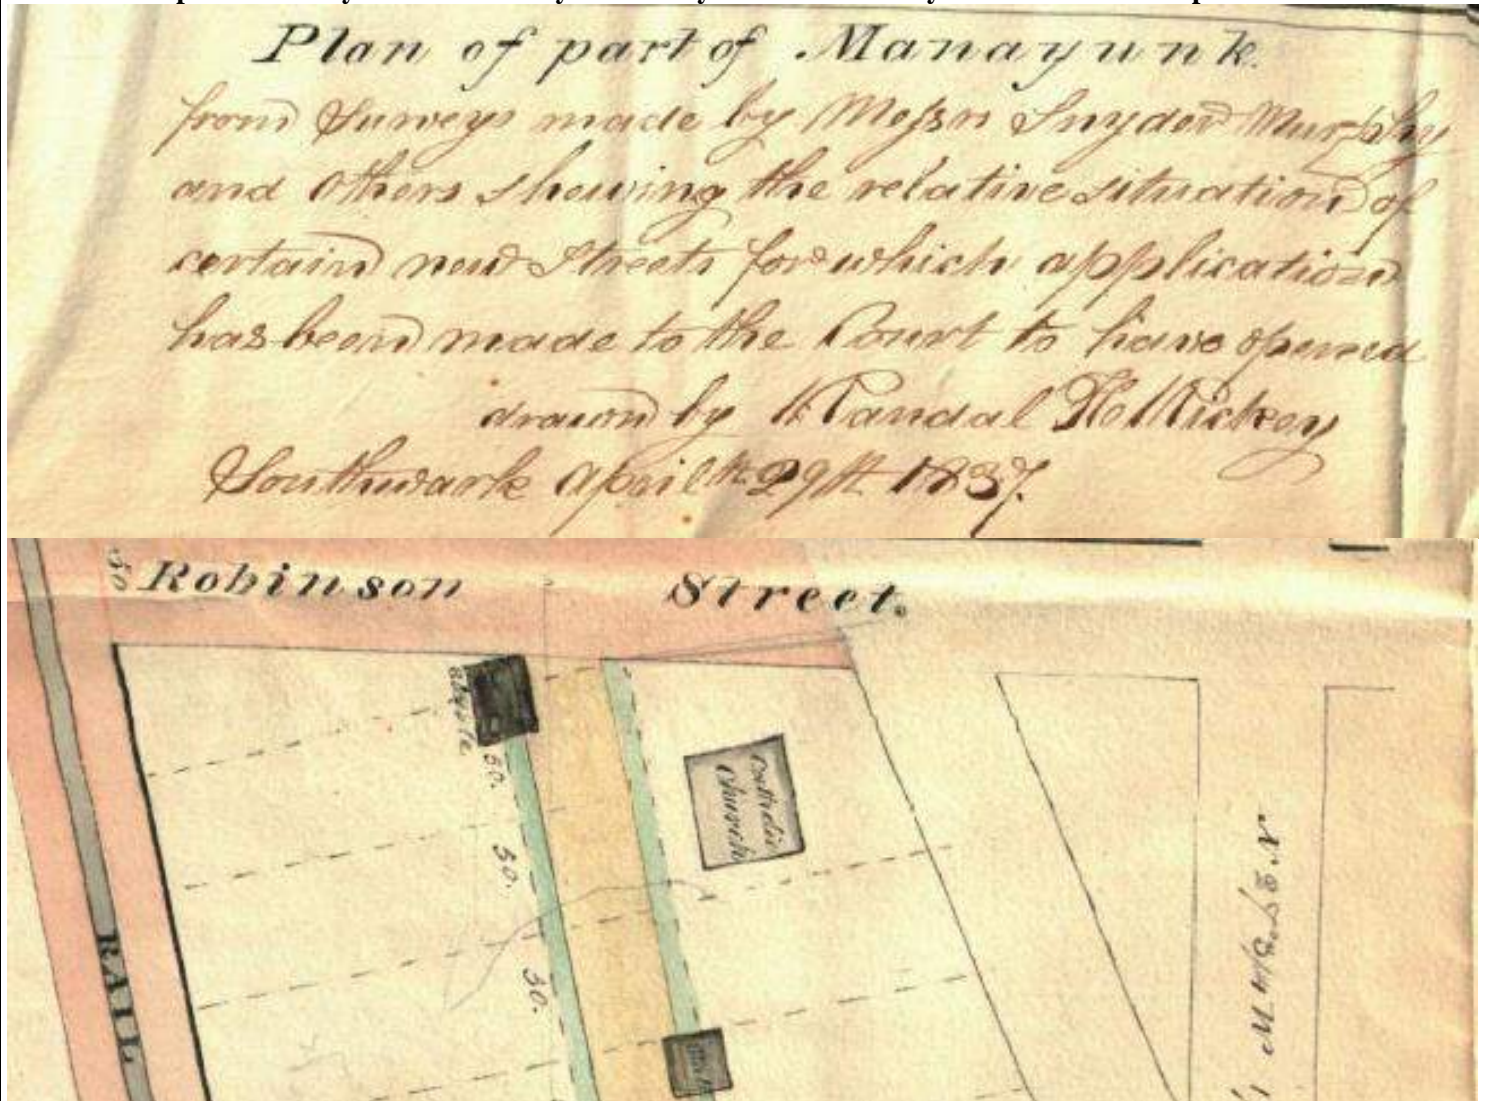 Plan of part of Manayunk.
from Surveys made by Messrs Snyder Murphy
and others shewing the relative situation of
certain new Streets for which application
has been made to the Court to have opened
drawn by Randal
Southwark April 29th 1837.
Robinson Street.
50
50.
Catholic
Church
50.
50.
RAIL